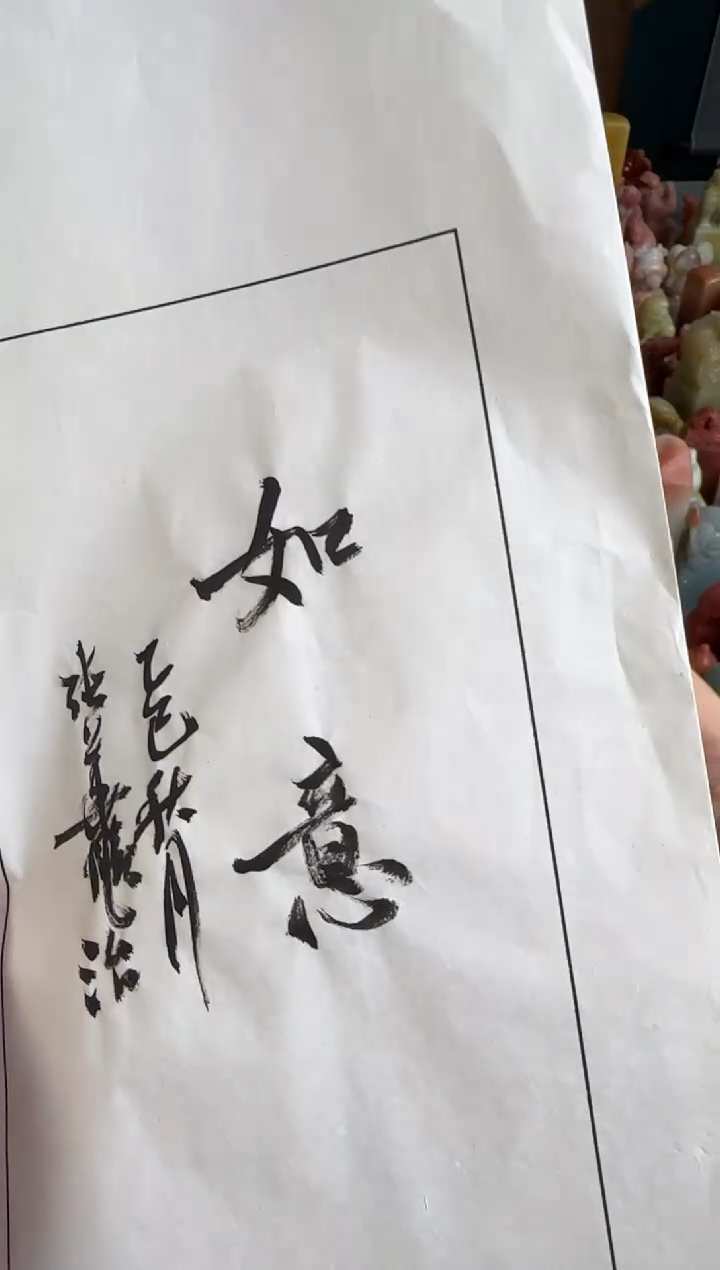 如意
乙巳秋月
张
治